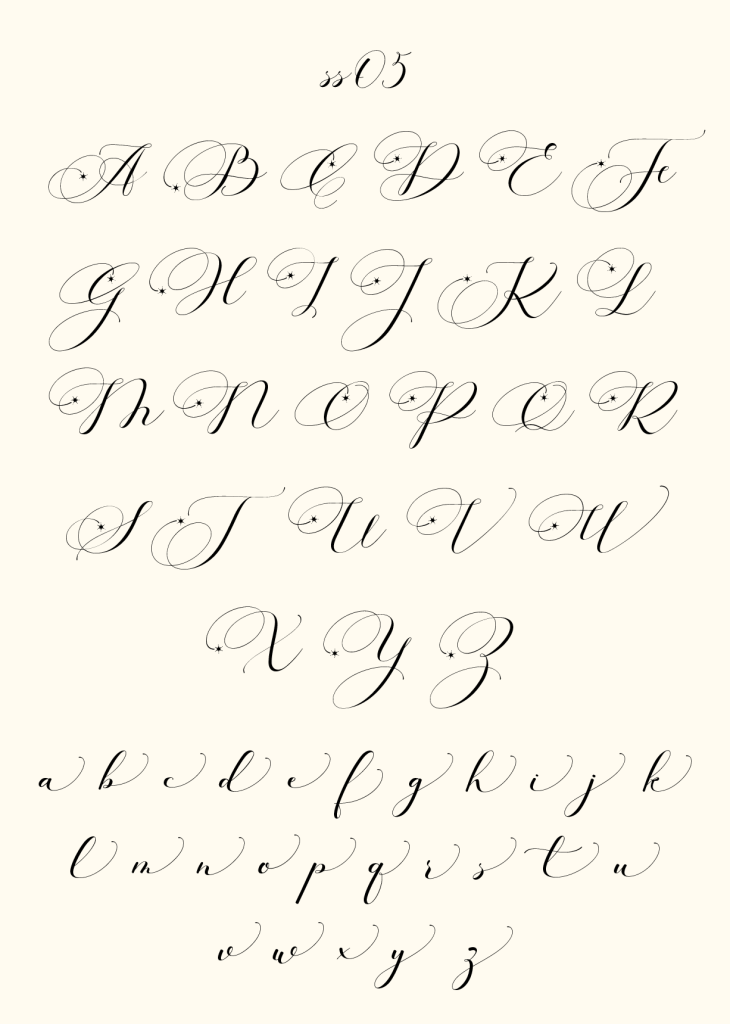 ss05
A B C D E F
G H I J K L
M N O P Q R
S T U V W
X Y Z
a b c d e f g h i j k
l m n o p q r s t u
v w x y z